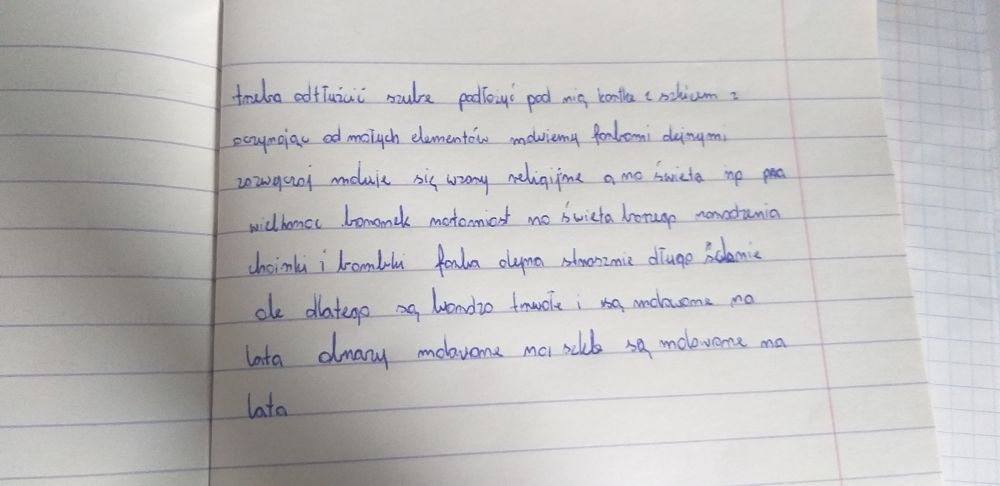 trzeba odtłuścić szube podłożyć pod nią kartke z szkicem z
oczynając od małych elementów malujemy farbami olejnymi
zazwyczaj maluje się wzory religijne a na święta np
wielkanoc baranek natomiast na święta bożego narodzenia
choinki i bombki farba olejna strasznie długo schnie
ale dlatego są bardzo trwałe i są malowane na
lata obrazy malowane na szkle są malowane na
lata